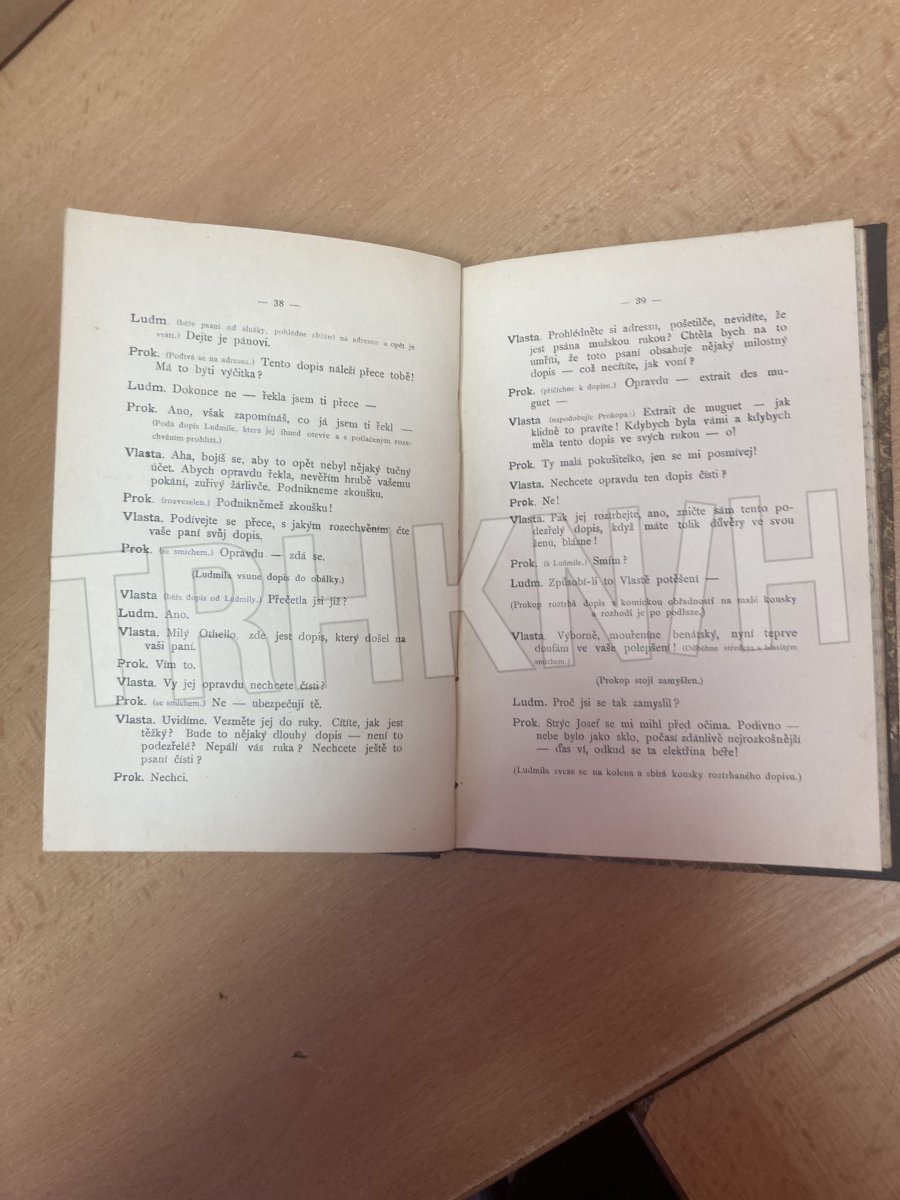 — 38 —
Ludm. (béře psaní od služky, pohlédne zběžně na adressu a opět je
vrátí.) Dejte je pánovi.
Prok. (Podívá se na adressu.) Tento dopis náleží přece tobě!
Má to býti výčitka?
Ludm. Dokonce ne — řekla jsem ti přece —
Prok. Ano, však zapomínáš, co já jsem ti řekl —
(Podá dopis Ludmile, která jej ihned otevře a s potlačeným roze-
chvěním prohlíží.)
Vlasta. Aha, bojíš se, aby to opět nebyl nějaký tučný
účet. Abych opravdu řekla, nevěřím hrubě vašemu
pokání, zuřivý žárlivče. Podnikneme zkoušku.
Prok. (rozveselen.) Podnikněmež zkoušku!
Vlasta. Podívejte se přece, s jakým rozechvěním čte
vaše paní svůj dopis.
Prok. (se smíchem.) Opravdu — zdá se.
(Ludmila vsune dopis do obálky.)
Vlasta (béře dopis od Ludmily.) Přečetla jsi již?
Ludm. Ano.
Vlasta. Milý Othello, zde jest dopis, který došel na
vaši paní.
Prok. Vím to.
Vlasta. Vy jej opravdu nechcete čísti?
Prok. (se smíchem.) Ne — ubezpečuji tě.
Vlasta. Uvidíme. Vezměte jej do ruky. Cítíte, jak jest
těžký? Bude to nějaký dlouhý dopis — není to
podezřelé? Nepálí vás ruka? Nechcete ještě to
psaní čísti?
Prok. Nechci.
— 39 —
Vlasta. Prohlédněte si adressu, pošetilče, nevidíte, že
jest psána mužskou rukou? Chtěla bych na to
umříti, že toto psaní obsahuje nějaký milostný
dopis — což necítíte, jak voní?
Prok. (přičichne k dopisu.) Opravdu — extrait des mu-
guet —
Vlasta (napodobujíc Prokopa:) Extrait de muguet — jak
klidně to pravíte! Kdybych byla vámi a kdybych
měla tento dopis ve svých rukou — o!
Prok. Ty malá pokušitelko, jen se mi posmívej!
Vlasta. Nechcete opravdu ten dopis čísti?
Prok. Ne!
Vlasta. Pak jej roztrhejte, ano, zničte sám tento po-
dezřelý dopis, když máte tolik důvěry ve svou
ženu, blázne!
Prok. (k Ludmile.) Smím?
Ludm. Způsobí-li to Vlastě potěšení —
(Prokop roztrhá dopis s komickou obřadností na malé kousky
a rozhodí je po podlaze.)
Vlasta. Výborně, mouřeníne benátský, nyní teprve
doufám ve vaše polepšení! (Odběhne středem s hlasitým
smíchem.)
(Prokop stojí zamyšlen.)
Ludm. Proč jsi se tak zamyslil?
Prok. Strýc Josef se mi mihl před očima. Podivno —
nebe bylo jako sklo, počasí zdánlivě nejrozkošnější
— ďas ví, odkud se ta elektřina béře!
(Ludmila sveze se na kolena a sbírá kousky roztrhaného dopisu.)
TRHKNIH